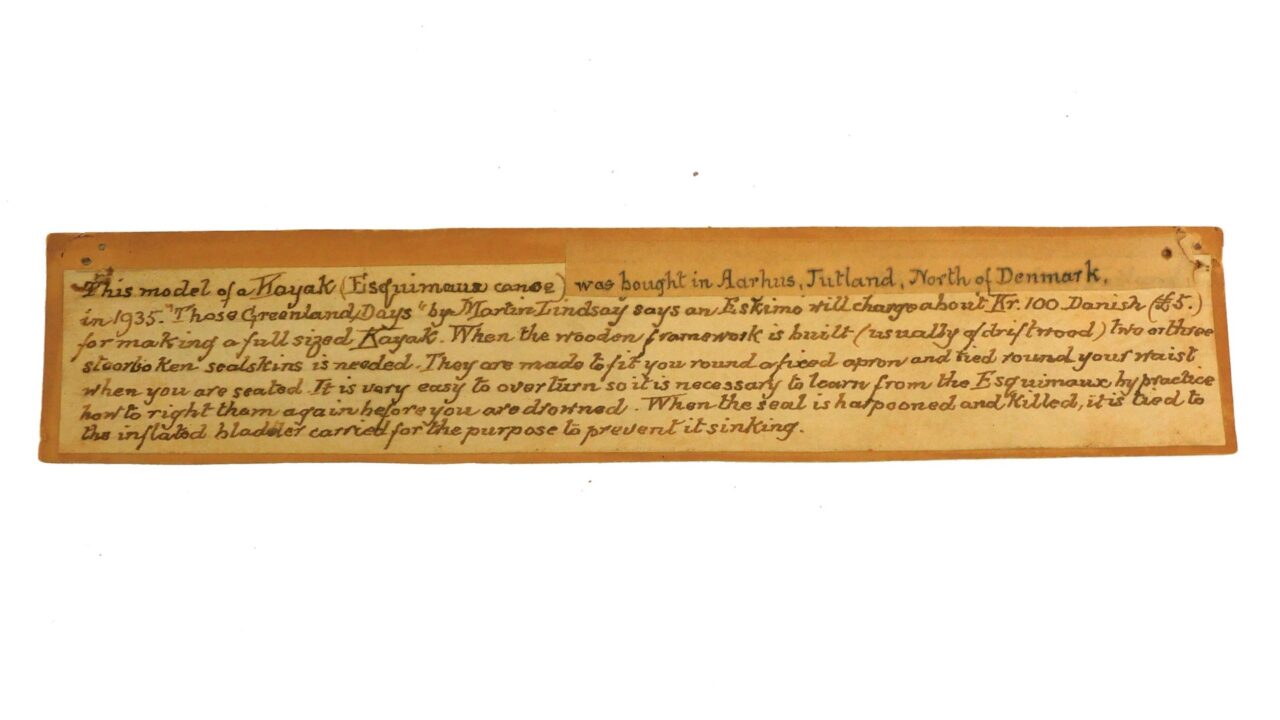 This model of a Kayak (Esquimaux canoe) was bought in Aarhus, Jutland, North of Denmark,
in 1935. "Those Greenland Days" by Martin Lindsay says an Eskimo will charge about Kr. 100. Danish (£5.)
for making a full sized Kayak. When the wooden framework is built (usually of driftwood) two or three
sealskins is needed. They are made to fit you round a fixed apron and tied round your waist
when you are seated. It is very easy to overturn so it is necessary to learn from the Esquimaux by practice
how to right them again before you are drowned. When the seal is harpooned and killed, it is tied to
the inflated bladder carried for the purpose to prevent it sinking.